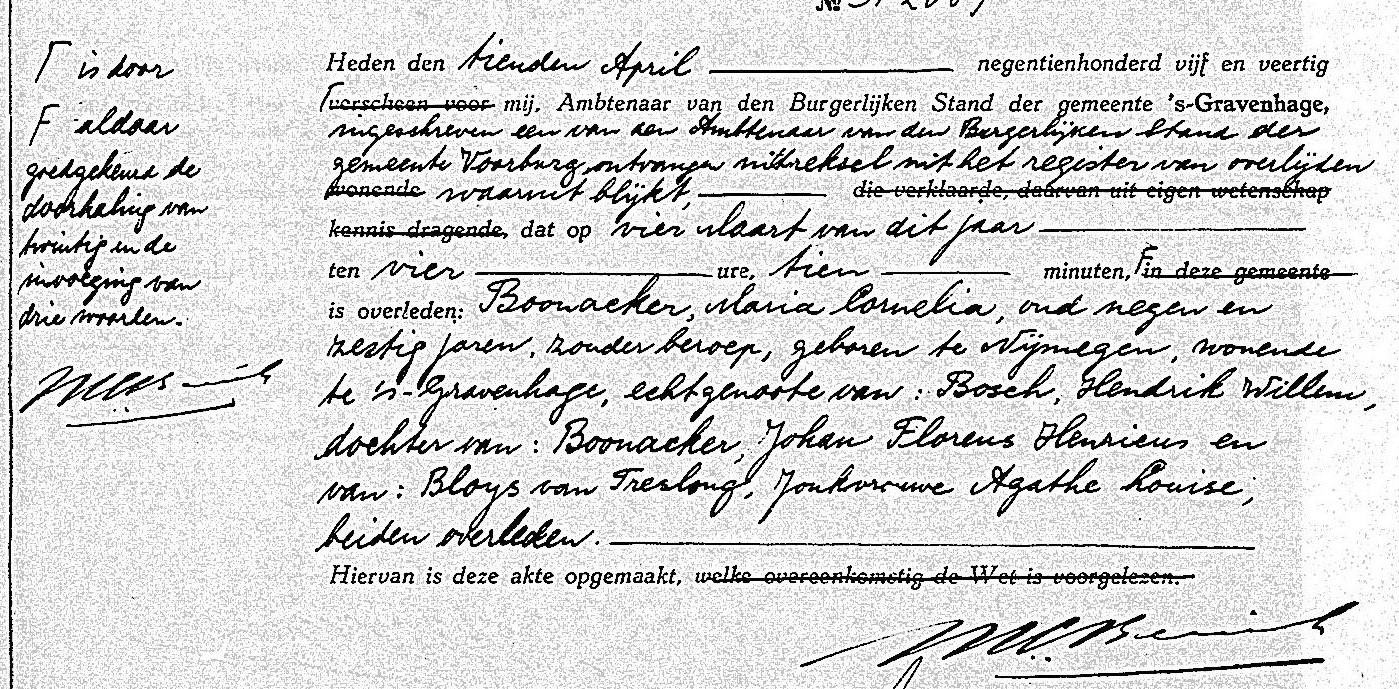 №
Γ is door
F aldaar
goedgekeurd de
doorhaling van
twintig en de
invoeging van
drie woorden.
Heden den tienden April negentienhonderd vijf en veertig
Γ verscheen voor mij, Ambtenaar van den Burgerlijken Stand der gemeente 's-Gravenhage,
ingeschreven een van den Ambtenaar van den Burgerlijken Stand der
gemeente Voorburg ontvangen uittreksel uit het register van overlijden
wonende waaruit blijkt, die verklaarde, daarvan uit eigen wetenschap
kennis dragende, dat op vier Maart van dit jaar
ten vier ure, tien minuten, F in deze gemeente
is overleden: Boonacker, Maria Cornelia, oud negen en
zestig jaren, zonder beroep, geboren te Nijmegen, wonende
te 's-Gravenhage, echtgenoote van: Bosch, Hendrik Willem,
dochter van: Boonacker, Johan Florens Henricus en
van: Bloys van Treslong, Jonkvrouwe Agathe Louise,
beiden overleden.
Hiervan is deze akte opgemaakt, welke overeenkomstig de Wet is voorgelezen.